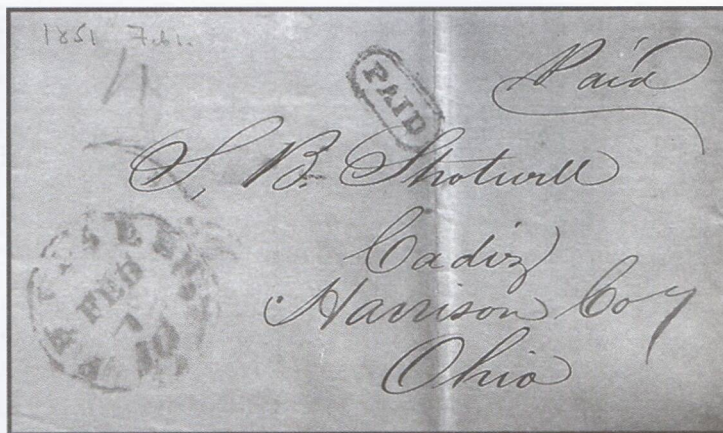 1851 Feb 1.
PAID
Paid
S. B. Shotwell
Cadiz
Harrison Coy
Ohio
FEB
10